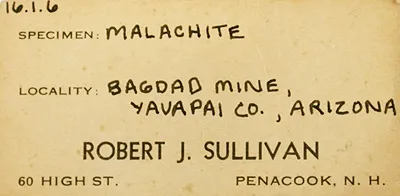 16.1.6
SPECIMEN: MALACHITE
LOCALITY: BAGDAD MINE,
YAVAPAI CO., ARIZONA
ROBERT J. SULLIVAN
60 HIGH ST. PENACOOK, N. H.